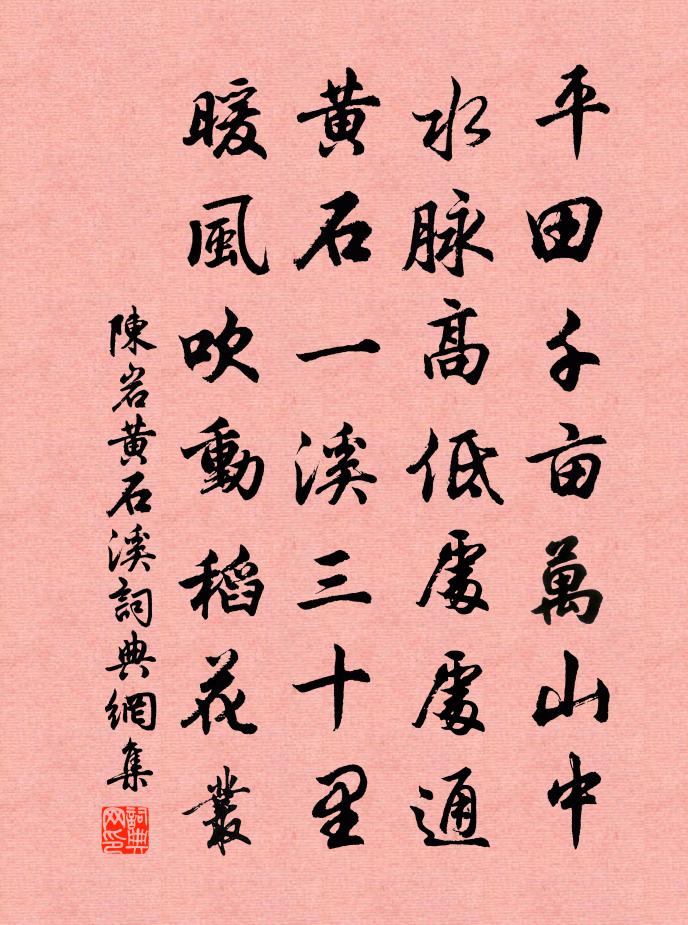 平田千亩萬山中
水脉高低處處通
黄石一溪三十里
暖風吹動稻花叢
陳岩黄石溪詞典網集
詞典网印